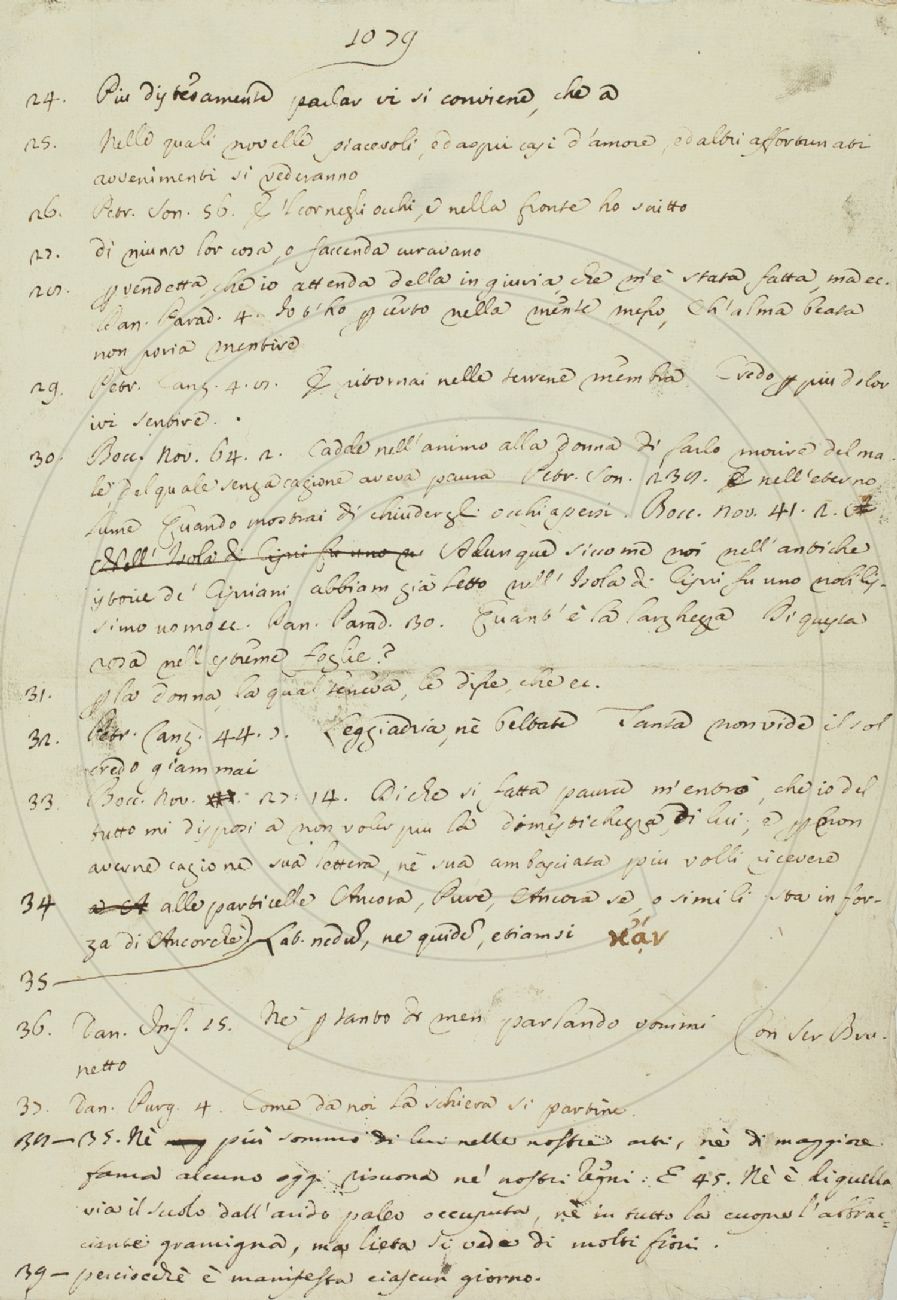 1079
24. Piu distesamente parlar vi si conviene, che a
25. Nelle quali novelle piacevoli, ed aspri casi d'amore, ed altri affortunati
avvenimenti si vederanno
26. Petr. Son. 56. E 'l cor negli occhi, e nella fronte ho scritto
27. di niuna lor cosa, o faccenda curavano
28. p vendetta, che io attenda della ingiuria, che m'è stata fatta, ma ec.
Dan. Parad. 4. Io t'ho p certo nella mente messo, Ch'alma beata
non poria mentire
29. Petr. Canz. 4. 8. E ritornai nelle terrene membra Credo p piu dolor
ivi sentire.
30. Bocc. Nov. 64. 2. Cadde nell'animo alla donna di farlo morire del ma-
le, del quale senza cagione aveva paura Petr. Son. 238. E nell'eterno
lume Quando mostrai di chiuder gli occhi apersi. Bocc. Nov. 41. 2.
Nell'Isola di Cipri fu uno n Adunque siccome noi nell'antiche
istorie de' Cipriani abbiam già letto nell'Isola di Cipri fu uno nobilis-
simo uomo ec. Dan. Parad. 30. Quant'è la larghezza Di questa
rosa nell'estreme foglie?
31. p la donna, la qual teneva, le disse, che ec.
32. Petr. Canz. 44. 7. Leggiadria, nè beltate Tanta non vide il sol
credo giammai
33. Bocc. Nov. 27. 14. Di che sì fatta paura m'entrò, che io del
tutto mi disposi a non voler piu la dimestichezza di lui; e p non
averne cagione sua lettera, nè sua ambasciata piu volli ricevere
34 alle particelle Ancora, Pure, Ancora se, o simili sta in for-
za di Ancorchè) Lat. nedu, ne quide, etiamsi κἄν
35
36. Dan. Inf. 15. Nè p tanto di men parlando vommi Con Ser Bru-
netto
37. Dan. Purg. 4. Come da noi la schiera si partine
38 — 35. Nè più sommo di lui nelle nostre arti, nè di maggiore
fama alcuno oggi risuona ne' nostri regni: E 45. Nè è di quella
via il suolo dall'arido paleo occupata, nè in tutto la cuopre l'abbrac-
ciante gramigna, ma lieta si vede di molti fiori.
39 — perciocchè è manifesta ciascun giorno.